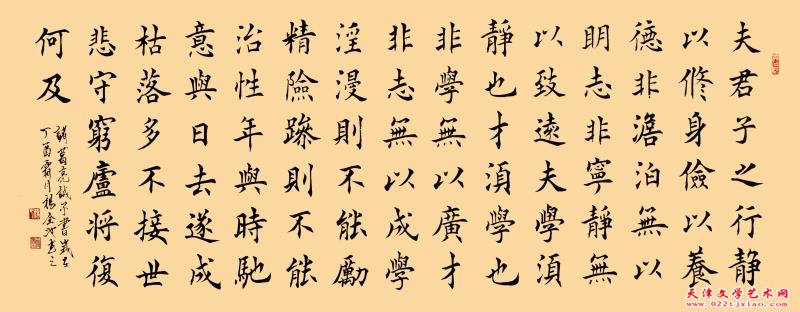 夫君子之行靜
以脩身儉以養
德非澹泊無以
明志非寧靜無
以致遠夫學須
靜也才須學也
非學無以廣才
非志無以成學
淫漫則不能勵
精險躁則不能
治性年與時馳
意與日去遂成
枯落多不接世
悲守窮廬將復
何及
諸葛亮誡子書歲在
丁酉霜月書之
天津文学艺术网
www.022tjxiao.com